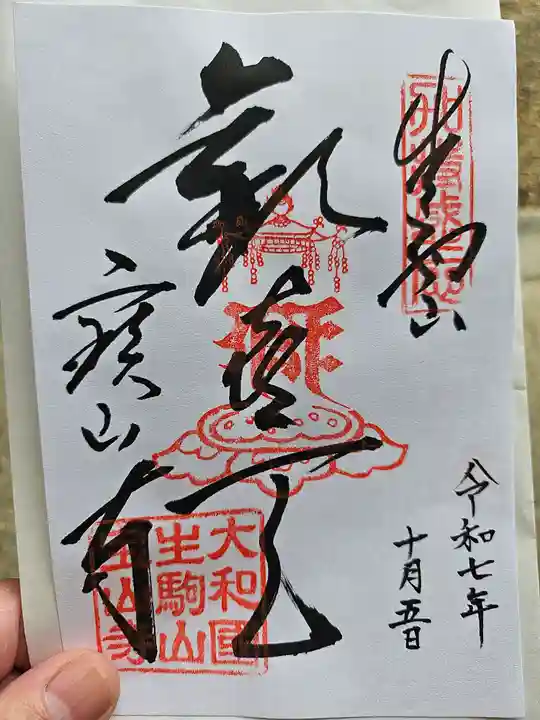 生駒山
歓喜天
寳山寺
令和七年
十月五日
大和國
生駒山
寳山寺